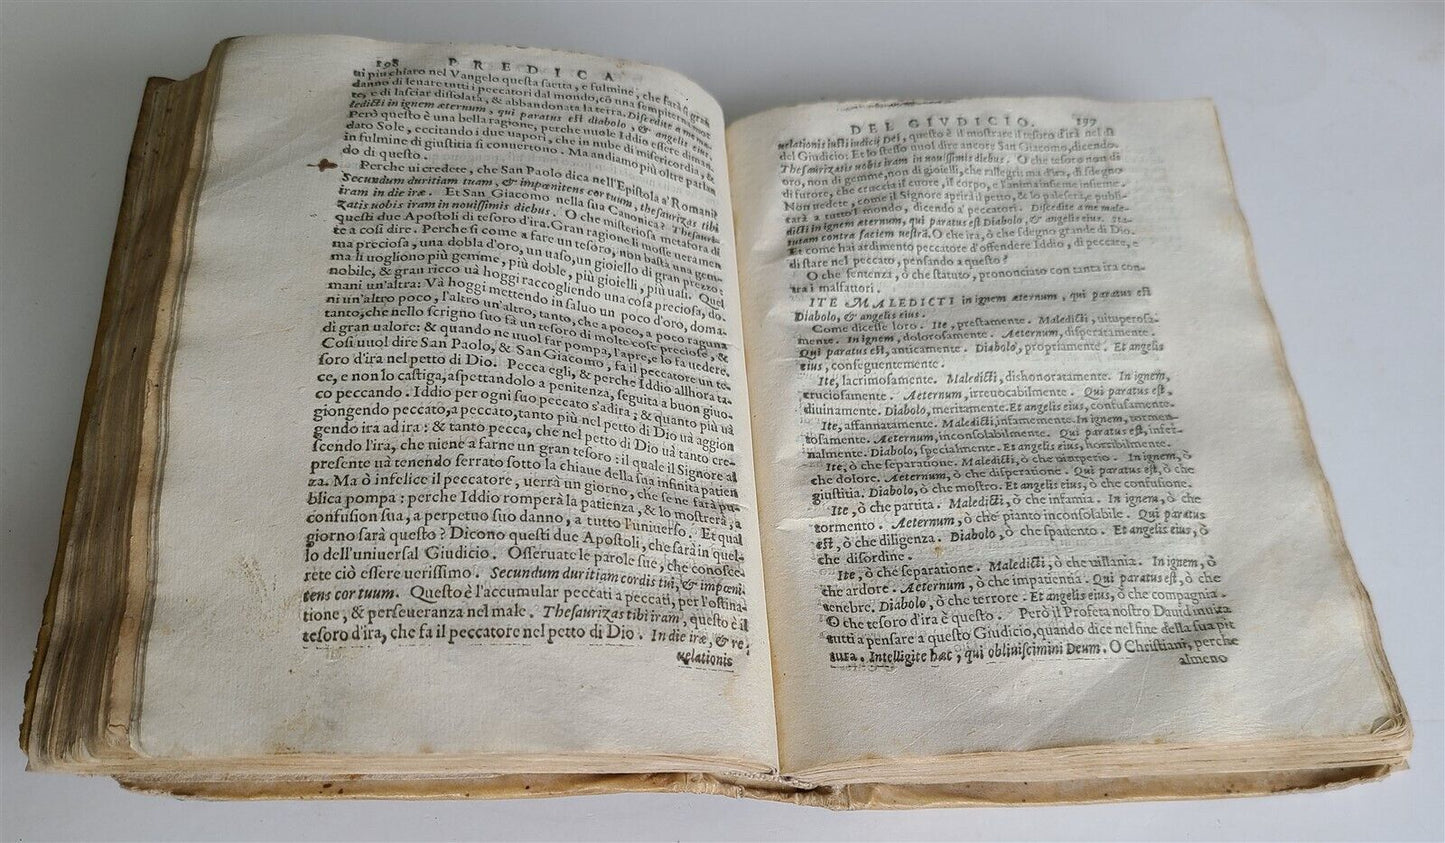 198 PREDICA
ui piu chiaro nel Vangelo questa saetta, e fulmine, che farà sì gran
danno di leuare tutti i peccatori dal mondo, cō una sempiterna mor
te, e di lasciar dissolata, & abbandonata la terra. Discedite a me ma-
ledicti in ignem æternum, qui paratus est diabolo, & angelis eius.
Però questo è una bella ragione, perche uuole Iddio essere diman-
dato Sole, eccitando i due uapori, che in nube di misericordia, &
in fulmine di giustitia si conuertono. Ma andiamo più oltre parlan
do di questo.
Perche ui credete, che San Paolo dica nell'Epistola a' Romani?
Secundum duritiam tuam, & impœnitens cor tuum, thesaurizas tibi
iram in die iræ. Et San Giacomo nella sua Canonica? Thesauri-
zatis uobis iram in nouissimis diebus. O che misteriosa metafora di
questi due Apostoli di tesoro d'ira. Gran ragione li mosse ueramen
te a così dire. Perche sì come a fare un tesoro, non basta una gem-
ma preciosa, una dobla d'oro, un uaso, un gioiello di gran prezzo:
ma li uogliono più gemme, più doble, più gioielli, più uasi. Quel
nobile, & gran ricco uà hoggi raccogliendo una cosa preciosa, do-
mani un'altra: Và hoggi mettendo in saluo un poco d'oro, doma-
ni un'altro poco, l'altro un'altro, tanto, che a poco, a poco raguna
tanto, che nello scrigno suo fà un tesoro di molte cose preciose, &
di gran ualore: & quando ne uuol far pompa, l'apre, e lo fa uedere.
Così uuol dire San Paolo, & San Giacomo, fa il peccatore un te-
soro d'ira nel petto di Dio. Pecca egli, & perche Iddio allhora ta-
ce, e non lo castiga, aspettandolo a penitenza, seguita a buon giuo-
co peccando. Iddio per ogni suo peccato s'adira; & quanto più uà
giongendo peccato, a peccato, tanto più nel petto di Dio uà aggion
gendo ira ad ira: & tanto pecca, che nel petto di Dio uà tanto cre-
scendo l'ira, che uiene a farne un gran tesoro: il quale il Signore al
presente uà tenendo serrato sotto la chiaue della sua infinita patien
za. Ma ò infelice il peccatore, uerrà un giorno, che se ne farà pu-
blica pompa: perche Iddio romperà la patienza, & lo mostrerà, a
confusion sua, a perpetuo suo danno, a tutto l'uniuerso. Et qual
giorno sarà questo? Dicono questi due Apostoli, che sarà in quel-
lo dell'uniuersal Giudicio. Osseruate le parole sue, che conosce-
rete ciò essere uerissimo. Secundum duritiam cordis tui, & impœni
tens cor tuum. Questo è l'accumular peccati a peccati, per l'ostina-
tione, & perseueranza nel male. Thesaurizas tibi iram, questo è il
tesoro d'ira, che fa il peccatore nel petto di Dio. In die iræ, & re-
uelationis
DEL GIVDICIO. 197
uelationis iusti iudicij Dei, questo è il mostrare il tesoro d'ira nel dì
del Giudicio: Et lo stesso uuol dire ancora San Giacomo, dicendo.
Thesaurizatis uobis iram in nouissimis diebus. O che tesoro non di
oro, non di gemme, non di gioielli, che rallegri: ma d'ira, di sdegno
di furore, che cruccia il cuore, il corpo, e l'anima insieme insieme.
Non uedete, come il Signore aprirà il petto, & lo paleserà, e publi-
carà a tutto'l mondo, dicendo a' peccatori. Discedite a me male-
dicti in ignem æternum, qui paratus est Diabolo, & angelis eius. Sta-
tutam contra faciem uestrā. O che ira, ò che sdegno grande di Dio.
Et come hai ardimento peccatore d'offendere Iddio, di peccare, e
di stare nel peccato, pensando a questo?
O che sentenza, ò che statuto, prononciato con tanta ira con-
tra i malfattori.
ITE MALEDICTI in ignem æternum, qui paratus est
Diabolo, & angelis eius.
Come dicesse loro. Ite, prestamente. Maledicti, uituperosa-
mente. In ignem, dolorosamente. Aeternum, disperatamente.
Qui paratus est, anticamente. Diabolo, propriamente. Et angelis
eius, conseguentemente.
Ite, lacrimosamente. Maledicti, dishonoratamente. In ignem,
cruciosamente. Aeternum, irreuocabilmente. Qui paratus est,
diuinamente. Diabolo, meritamente. Et angelis eius, confusamente.
Ite, affannatamente. Maledicti, infamemente. In ignem, tormen-
tosamente. Aeternum, inconsolabilmente. Qui paratus est, infer-
nalmente. Diabolo, specialmente. Et angelis eius, horribilmente.
Ite, ò che separatione. Maledicti, ò che uituperio. In ignem, ò
che dolore. Aeternum, ò che disperatione. Qui paratus est, ò che
giustitia. Diabolo, ò che mostro. Et angelis eius, ò che confusione.
Ite, ò che partita. Maledicti, ò che infamia. In ignem, ò che
tormento. Aeternum, ò che pianto inconsolabile. Qui paratus
est, ò che diligenza. Diabolo, ò che spauento. Et angelis eius, ò
che disordine.
Ite, ò che separatione. Maledicti, ò che uillania. In ignem, ò
che ardore. Aeternum, ò che impatientia. Qui paratus est, ò che
tenebre. Diabolo, ò che terrore. Et angelis eius, ò che compagnia.
O che tesoro d'ira è questo. Però il Profeta nostro Dauid inuita
tutti a pensare a questo Giudicio, quando dice nel fine della sua pit
tura. Intelligite hæc, qui obliuiscimini Deum. O Christiani, perche
almeno